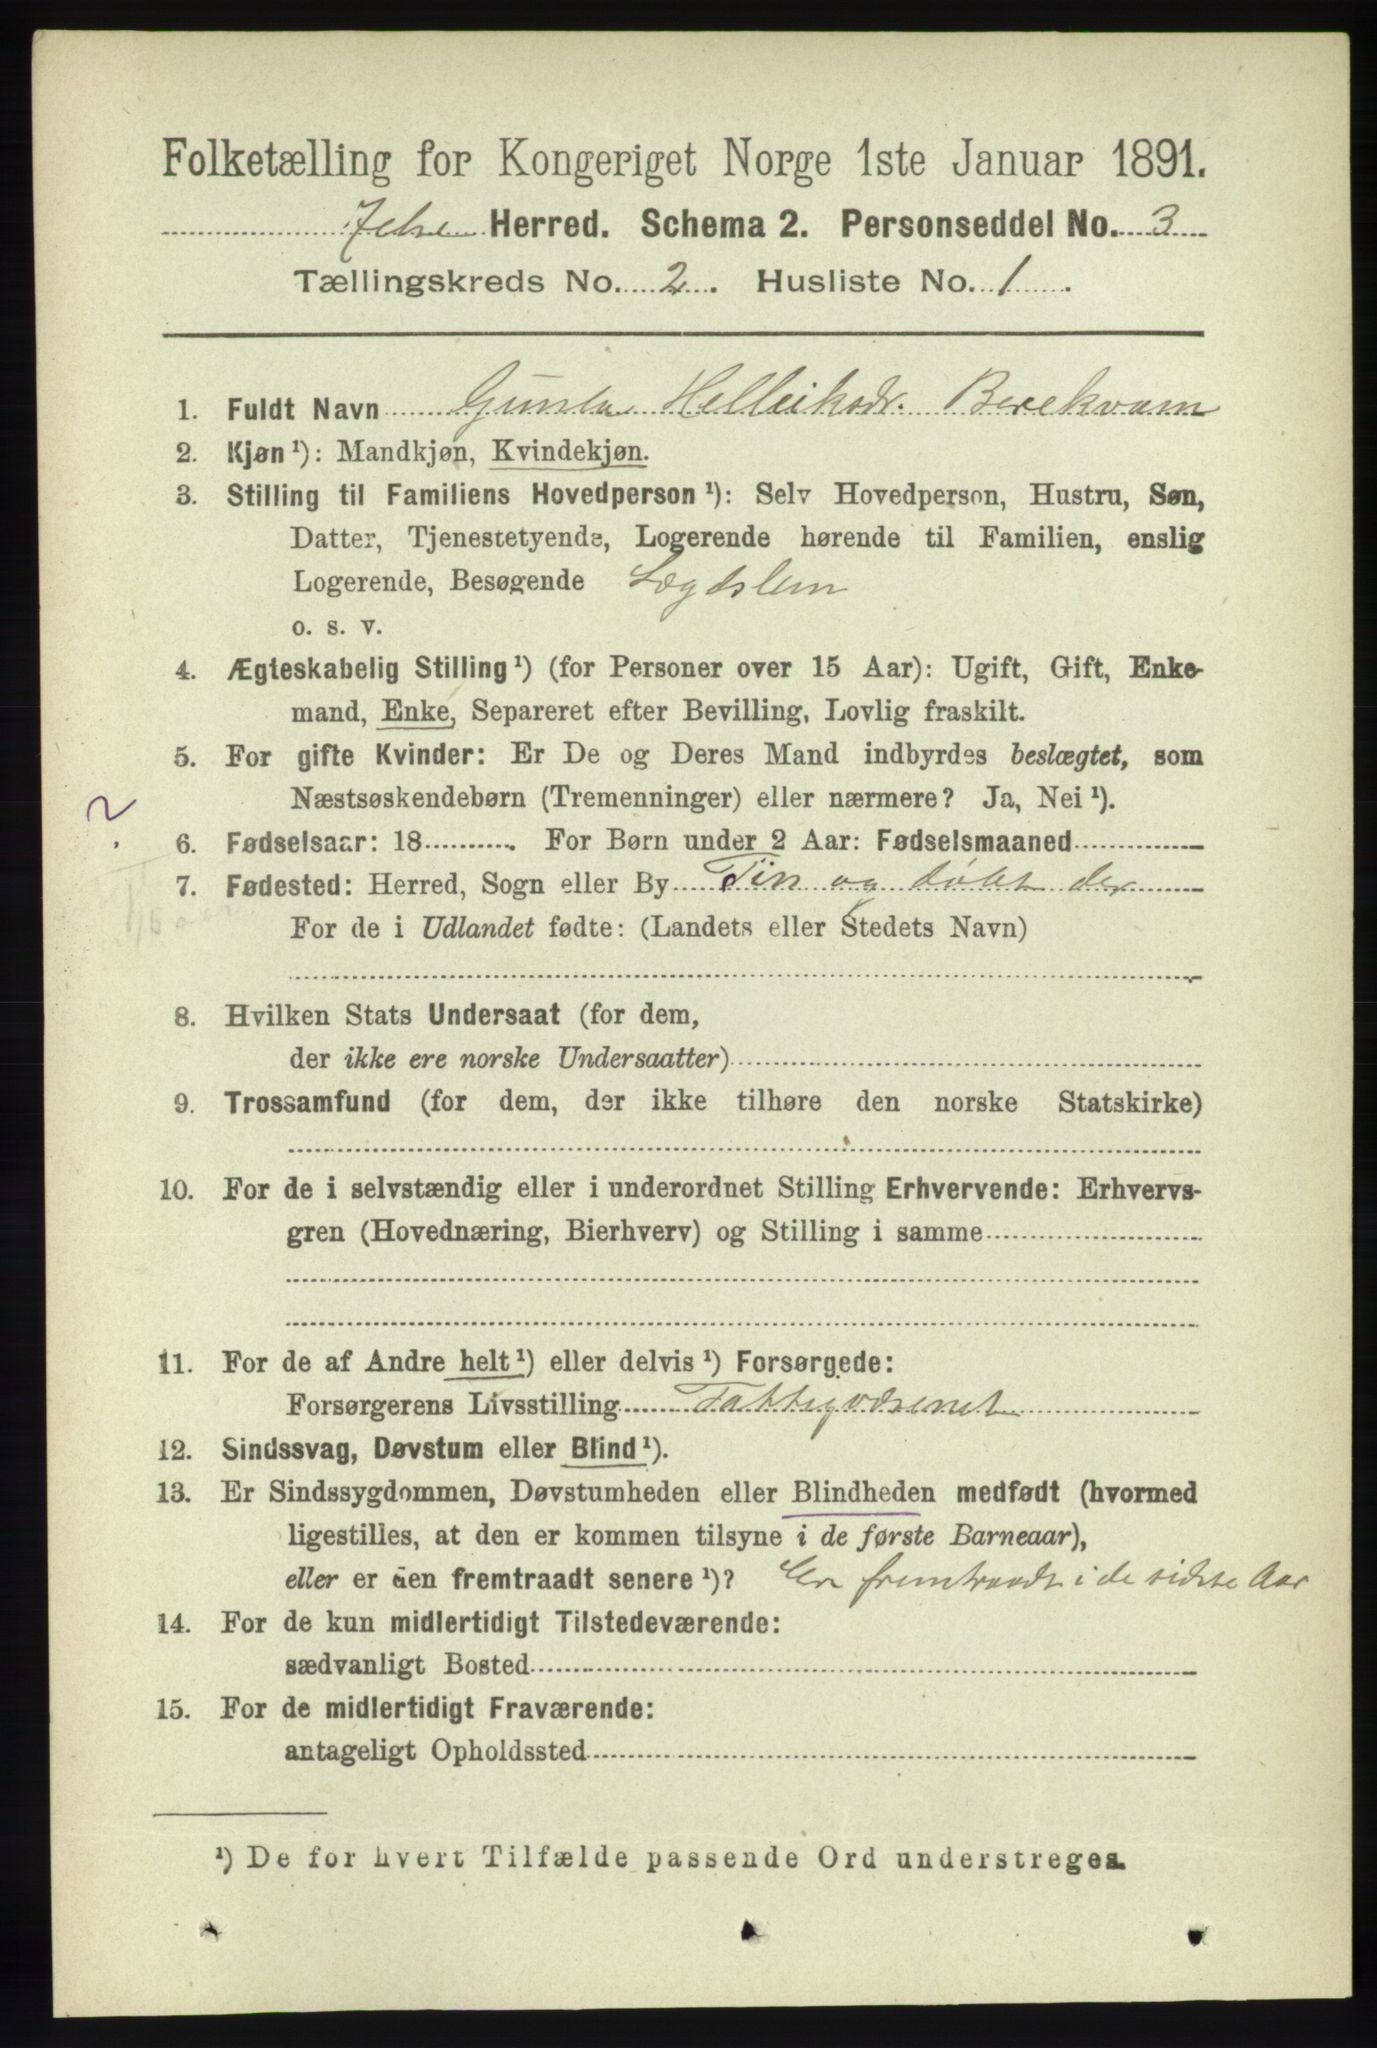 Folketælling for Kongeriget Norge 1ste Januar 1891.
Jelse Herred. Schema 2. Personseddel No. 3
Tællingskreds No. 2. Husliste No. 1.
1. Fuldt Navn Gunla Helleiksdr. Berekvam
2. Kjøn ¹): Mandkjøn, Kvindekjøn.
3. Stilling til Familiens Hovedperson ¹): Selv Hovedperson, Hustru, Søn,
Datter, Tjenestetyende, Logerende hørende til Familien, enslig
Logerende, Besøgende Lægdslem
o. s. v.
4. Ægteskabelig Stilling ¹) (for Personer over 15 Aar): Ugift, Gift, Enke-
mand, Enke, Separeret efter Bevilling, Lovlig fraskilt.
5. For gifte Kvinder: Er De og Deres Mand indbyrdes beslægtet, som
Næstsøskendebørn (Tremenninger) eller nærmere? Ja, Nei ¹).
?
6. Fødselsaar: 18 . For Børn under 2 Aar: Fødselsmaaned
7. Fødested: Herred, Sogn eller By Tin og døbt der
For de i Udlandet fødte: (Landets eller Stedets Navn)
8. Hvilken Stats Undersaat (for dem,
der ikke ere norske Undersaatter)
9. Trossamfund (for dem, der ikke tilhøre den norske Statskirke)
10. For de i selvstændig eller i underordnet Stilling Erhvervende: Erhvervs-
gren (Hovednæring, Bierhverv) og Stilling i samme
11. For de af Andre helt ¹) eller delvis ¹) Forsørgede:
Forsørgerens Livsstilling Fattigvæsenet
12. Sindssvag, Døvstum eller Blind ¹).
13. Er Sindssygdommen, Døvstumheden eller Blindheden medfødt (hvormed
ligestilles, at den er kommen tilsyne i de første Barneaar),
eller er den fremtraadt senere ¹)? Er fremtraadt i de sidste Aar
14. For de kun midlertidigt Tilstedeværende:
sædvanligt Bosted
15. For de midlertidigt Fraværende:
antageligt Opholdssted
¹) De for hvert Tilfælde passende Ord understreges.